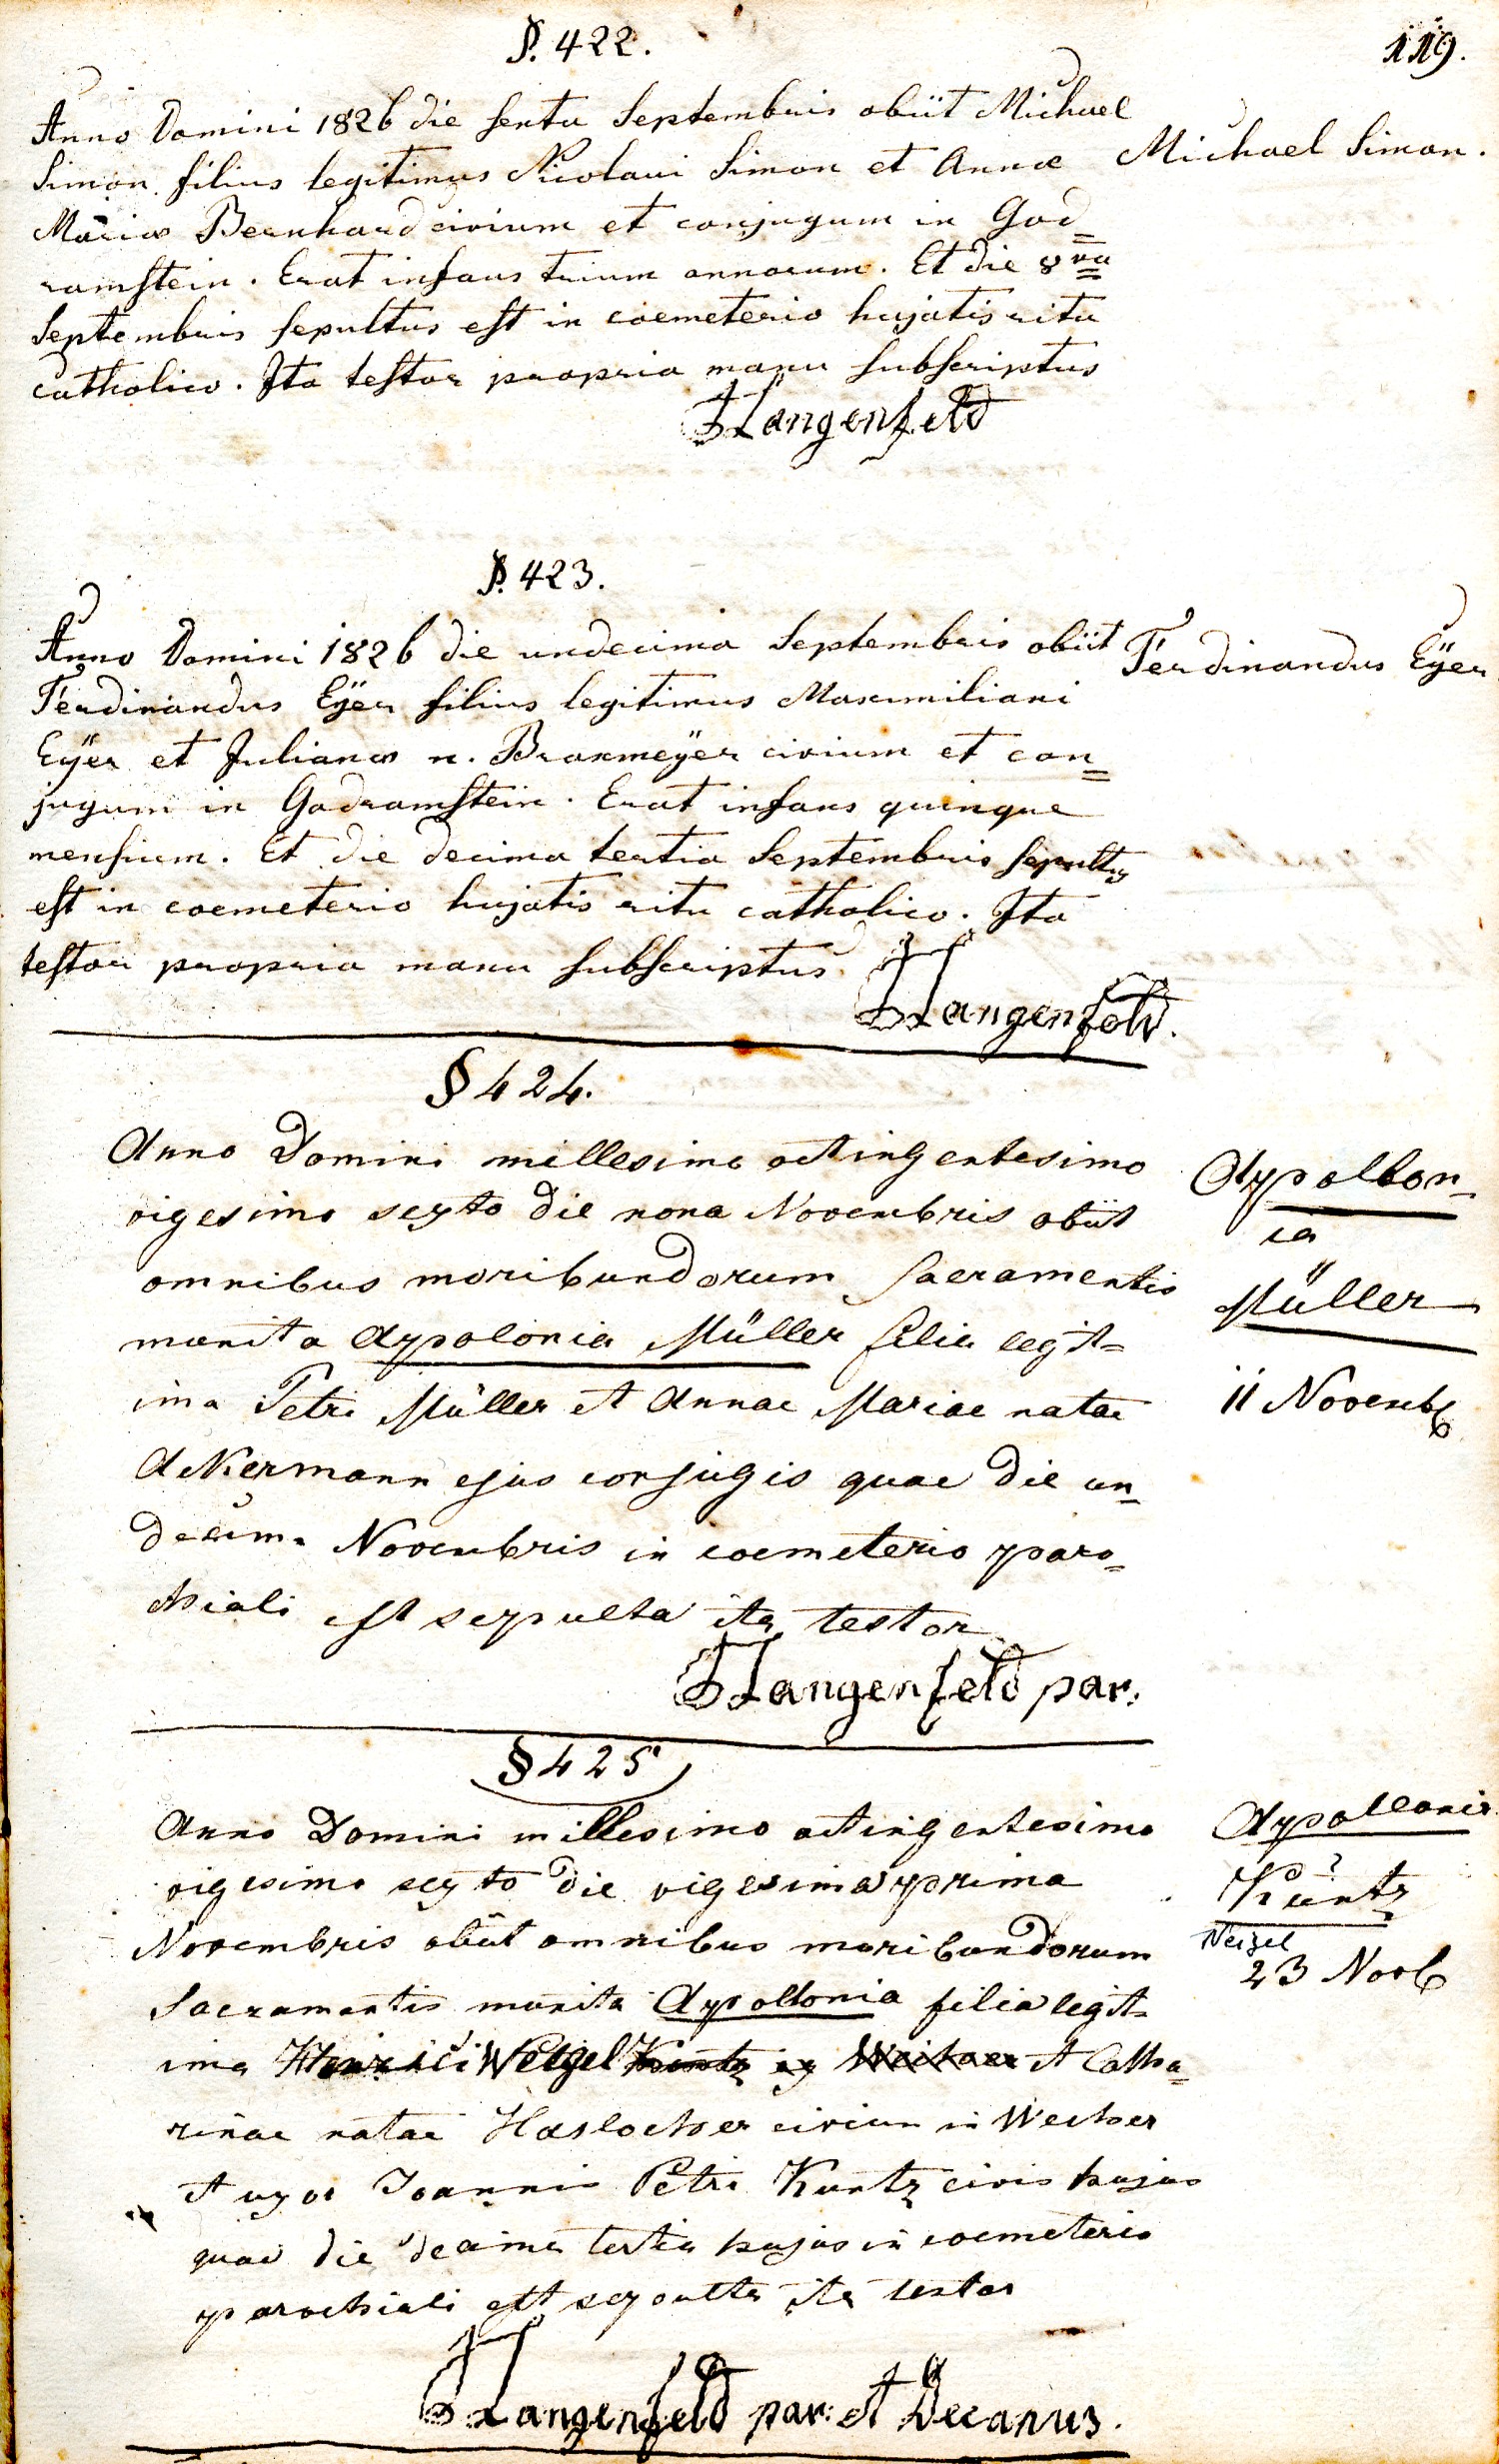 119.
§. 422.
Anno Domini 1826 die sexta Septembris obiit Michael
Simon filius legitimus Nicolaui Simon et Annæ
Mariæ Bernhard civium et conjugum in God=
ramstein. Erat infans trium annorum. Et die 8va
Septembris sepultus est in coemeterio hujatis ritu
catholico. Ita testor propria manu subscriptus
Langenfeld
Michael Simon.
§. 423.
Anno Domini 1826 die undecima Septembris obiit
Ferdinandus Eÿer filius legitimus Maximiliani
Eÿer et Julianæ n. Brаxmeÿer civium et con=
jugum in Godramstein. Erat infans quinque
mensium. Et die decima tertia Septembris sepultus
est in coemeterio hujatis ritu catholico. Ita
testor propria manu subscriptus
Langenfeld.
Ferdinandus Eÿer
§ 424.
Anno Domini millesimo octingentesimo
vigesimo sexto die nona Novembris obiit
omnibus moribundorum Sacramentis
munita Appolonia Müller filia legit=
ima Petri Müller et Annae Mariae natae
Ackermann ejus conjugis quae die un=
decima Novembris in coemeterio paro=
chiali est sepulta ita testor
Langenfeld par.
Appollon=
ia
Müller
11 Novemb
§ 425
Anno Domini millesimo octingentesimo
vigesimo sexto die vigesima prima
Novembris obiit omnibus moribundorum
Sacramentis munita Appollonia filia legit=
ima Henrici Weigel Kuntz ex Weiher et Catha=
rinae natae Haslocher civium in Weiher
et uxor Joannis Petri Kuntz civis hujas
quae die decima tertia hujus in coemeterio
parochiali est sepulta ita testor
Langenfeld par: et Decanus.
Appollonia
Kuntz
Weigel
23 Novb